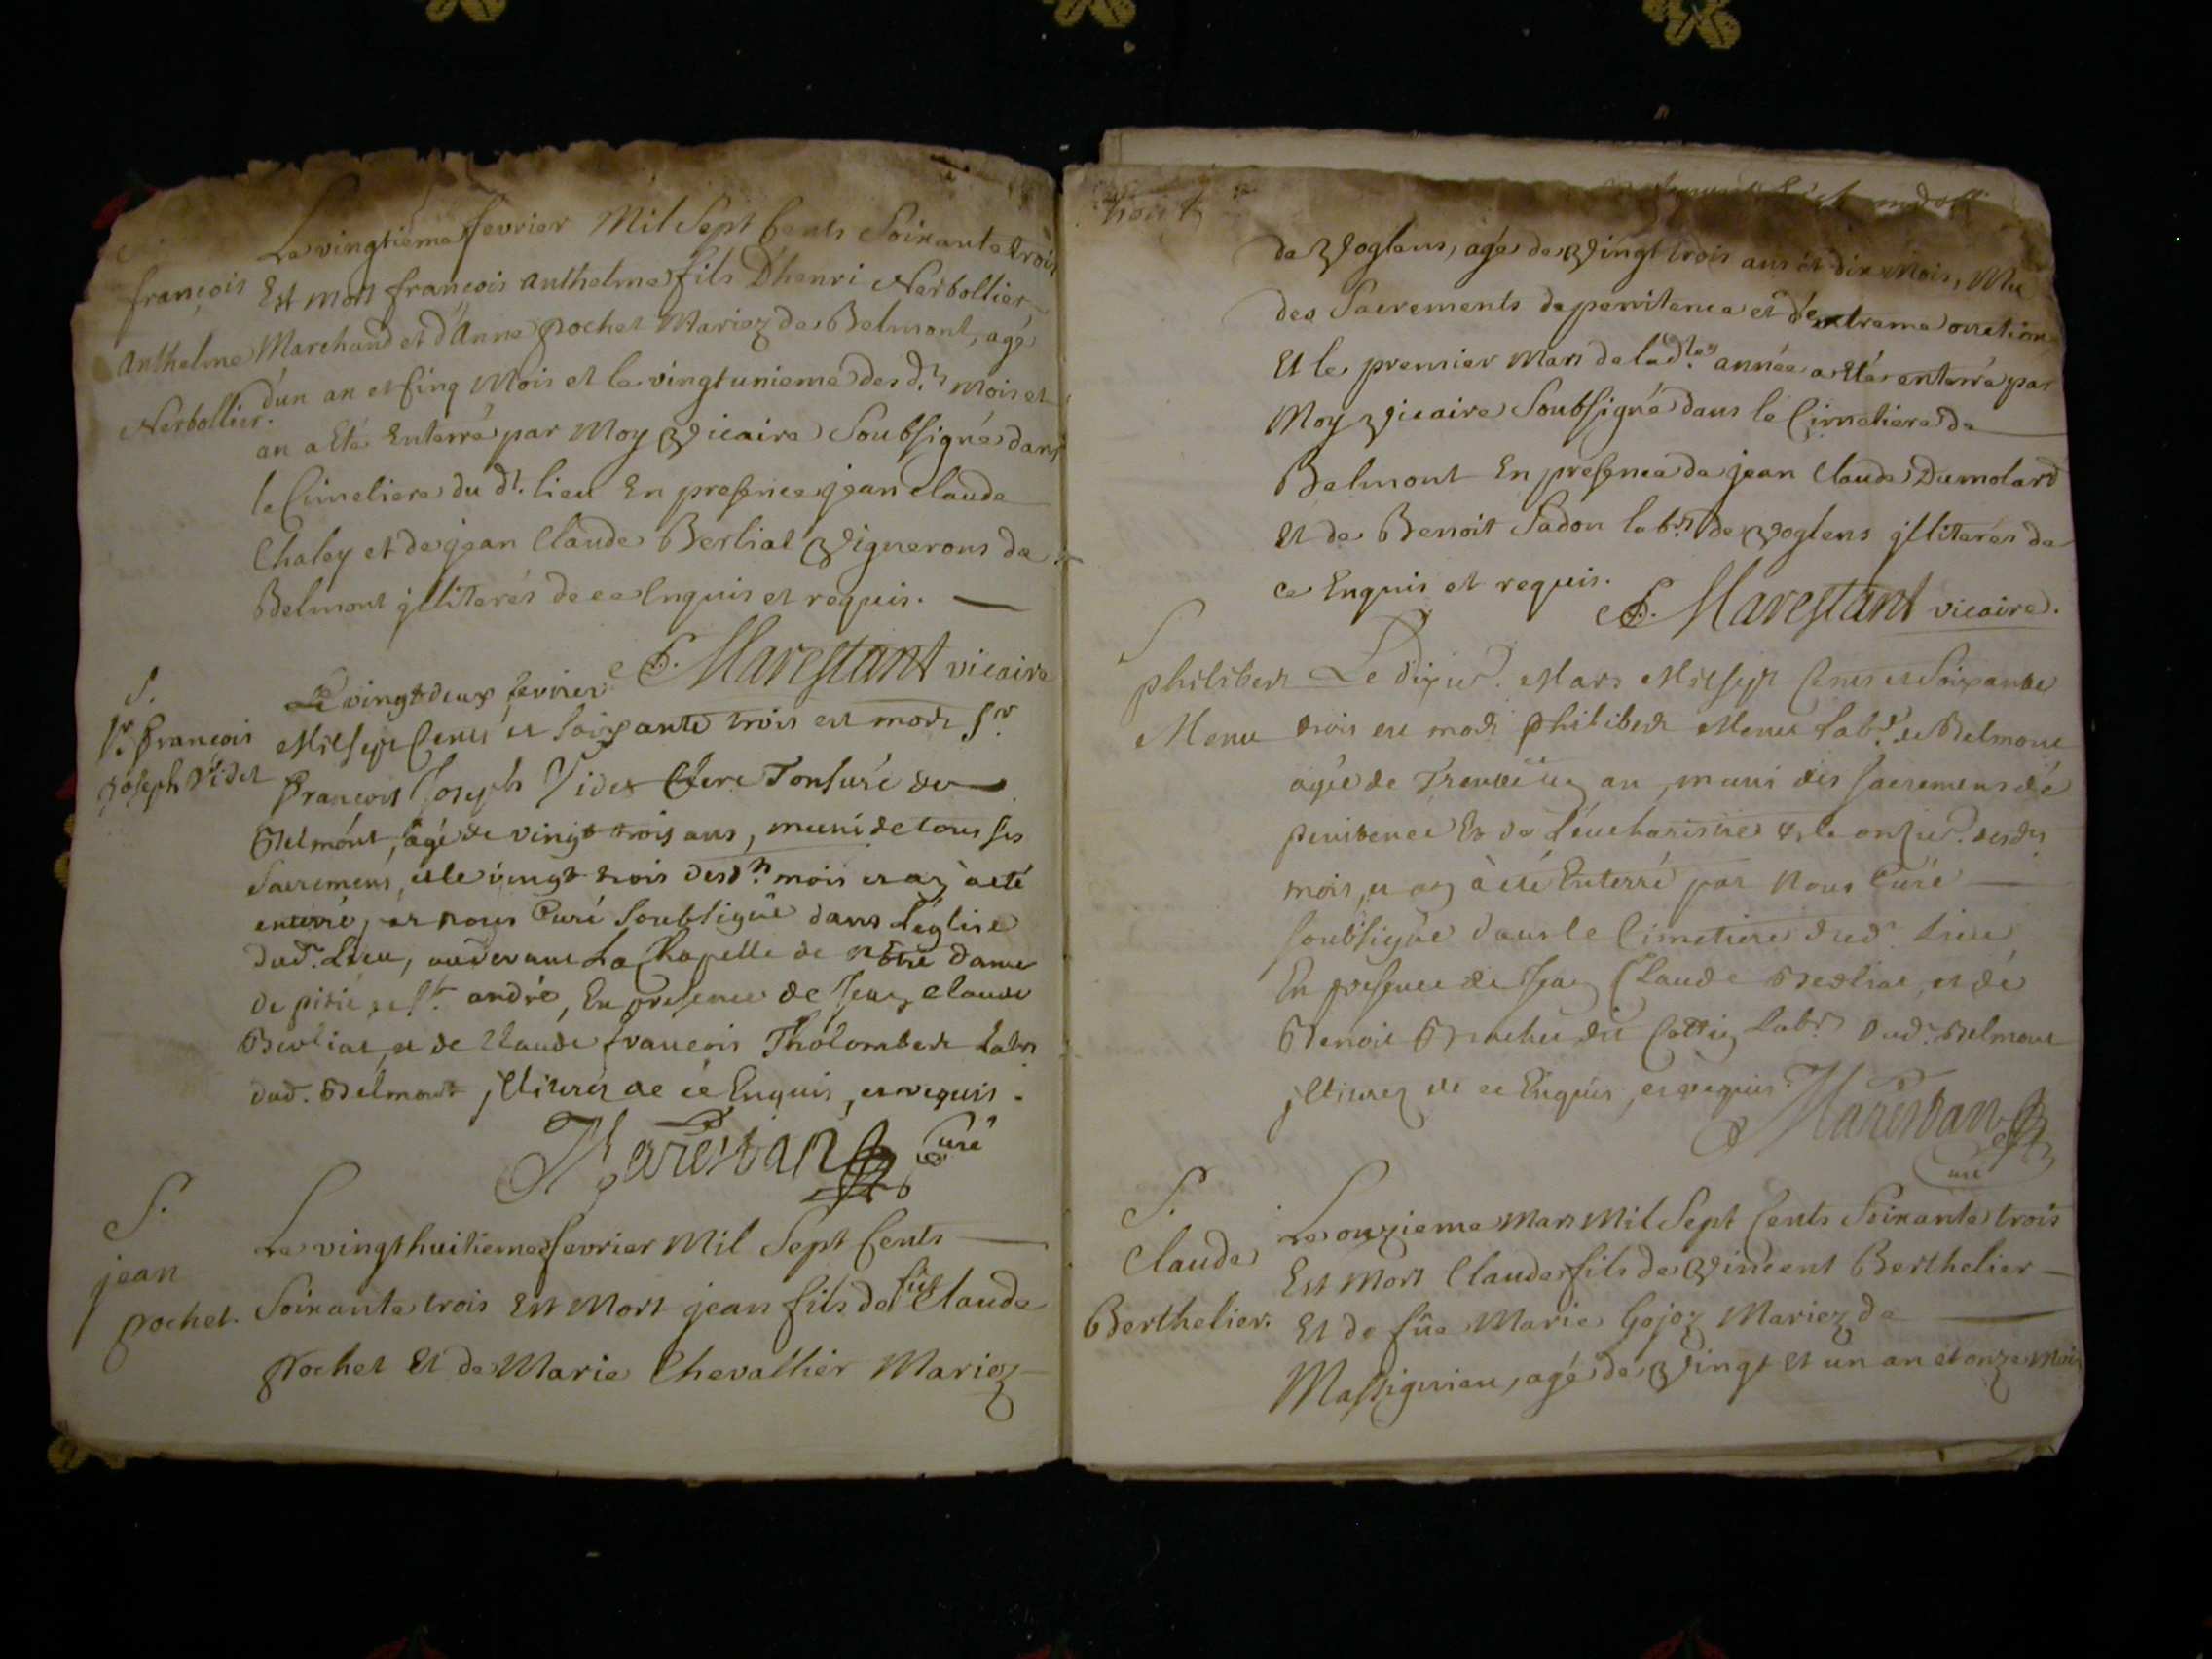 Le vingtiéme fevrier Mil Sept Cents Soixante trois
françois Est Mort françois Anthelme fils D'henri Nerbollier
Anthelme Marchand et d'Anne pochet Mariez de Belmont, agé
Nerbollier. d'un an et Cinq Mois et le vingtunieme des d.ts Mois et
an a Eté Enterré par Moy Vicaire Soubsigné dans
le Cimetiere du dt. lieu En presence jean Claude
Chaley et de jean Claude Berliat Vignerons de
Belmont jlliterés de ce Enquis et requis.
Marestant vicaire
S.
Le vingt deux fevrier
Sr. François Mil sept Cents et soixante trois est mort Sr.
Joseph Videt François Joseph Videt Clerc Tonsuré de
Belmont, agé de vingt trois ans, muni de tous ses
Sacremens, et le vingt trois desd.ts mois et an à eté
enterré, par nous Curé soubsigné dans L'église
dud. Lieu, audevant La Chapelle de Nôtre dame
de pitié, et St. andré, En presence de Jean claude
Berliat, et de Claude françois Tholombert Labrs
dud. Belmont jlliterés de ce Enquis, et requis.
Marestan Curé
S.
Le vingthuitieme fevrier Mil Sept Cents
jean Soixante trois Est Mort jean fils de fût Claude
pochet. Pochet Et de Marie Chevallier Mariez
de Voglens, agé de Vingt trois ans et dix Mois, Mu
des Sacrements de penitence et d'extreme onction
Et le premier Mars de lad.te année a Eté enterré par
Moy Vicaire Soubsigné dans le Cimetiere de
Belmont En presence de jean Claude Dumolard
Et de Benoit Sadon lab.rs de Voglens jlliterés de
ce Enquis et requis.
Marestant vicaire.
S
philibert Le dixie. Mars Mil sept Cents et Soixante
Menu trois est mort Philibert Menu Labr. de Belmont
agé de Trente un an, muni des sacremens de
penitence Et de L'eucharistie et le onzie. desdts
mois, et an à eté Enterré par Nous Curé
soubsigné dans le Cimetiere dud. Lieu
En presence de Jean Claude Berliat, et de
Benoit dit Cottin Labrs dud. Belmont
jlliterez de ce Enquis, et requis.
Marestan
curé
S.
Le onzieme Mars Mil Sept Cents Soixante trois
Claude Est Mort Claude fils de Vincent Berthelier
Berthelier. Et de fûe Marie Gojoz Mariez de
Massignieu, agé de Vingt et un an et onze Mois